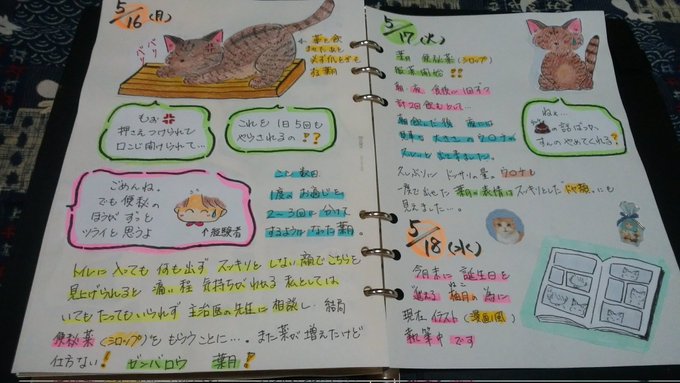 5/16(月)
バリ
バリ
もぉ
押さえつけられて
口こじ開けられて…
これを1日5回も
やらされるの!?
ごめんね。
でも便秘の
ほうがずっと
ツライと思うよ
↑経験者
ここ数日
1度のお通じを
2~3回に分けて
するようになった葉月。
トイレに入っても何も出ず スッキリとしない顔でこちらを
見上げられると 痛い程 気持ちがわかる私としては
いてもたってもいられず 主治医の先生に相談し 結局
便秘薬(シロップ)をもらうことに…。また薬が増えたけど
仕方ない! ガンバロウ 葉月!
5/17(火)
葉月 便秘薬(シロップ)
服薬開始!!
朝・夜 食後に1回ずつ
計2回飲ませて…
朝飲んだ後 夜には
見事に大きなウ○チが
スルッと出て来ました。
久しぶりに ドッサリの量。ウ○チと
一度に出せた葉月の表情はスッキリとしたドヤ顔にも
見えました…。
ねぇ…
の話ばっか
すんのやめてくれる?
5/18(水)
今月末に誕生日を
迎える柚月の為に
ねこ
現在イラスト(漫画風)
執筆中です